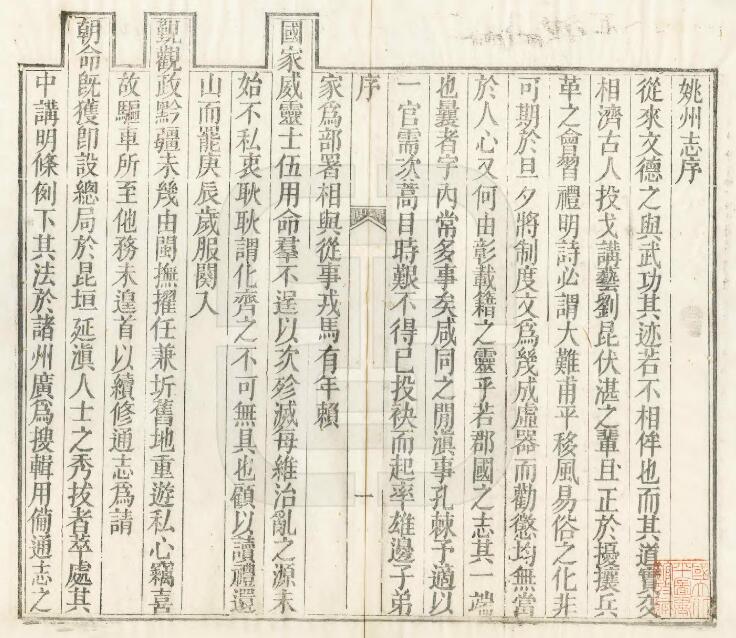 姚州志序
從來文德之與武功其迹若不相侔也而其道實交
相濟古人投戈講藝劉昆伏湛之輩且正於擾攘兵
革之會習禮明詩必謂大難甫平移風易俗之化非
可期於旦夕將制度文爲幾成虛器而勸懲均無當
於人心又何由彰載籍之靈乎若郡國之志其一端
也曩者宇內常多事矣咸同之閒滇事孔棘予適以
一官需次蒿目時艱不得已投袂而起率雄邊子弟
序
一
家爲部署相與從事戎馬有年賴
國家威靈士伍用命羣不逞以次殄滅每維治亂之源未
始不私衷耿耿謂化齊之不可無具也顧以讀禮還
山而罷庚辰歲服闋入
覲觀政黔疆未幾由閩撫擢任兼圻舊地重遊私心竊喜
故驅車所至他務未遑首以續修通志爲請
朝命旣獲卽設總局於昆垣延滇人士之秀拔者萃處其
中講明條例下其法於諸州廣爲搜輯用備通志之